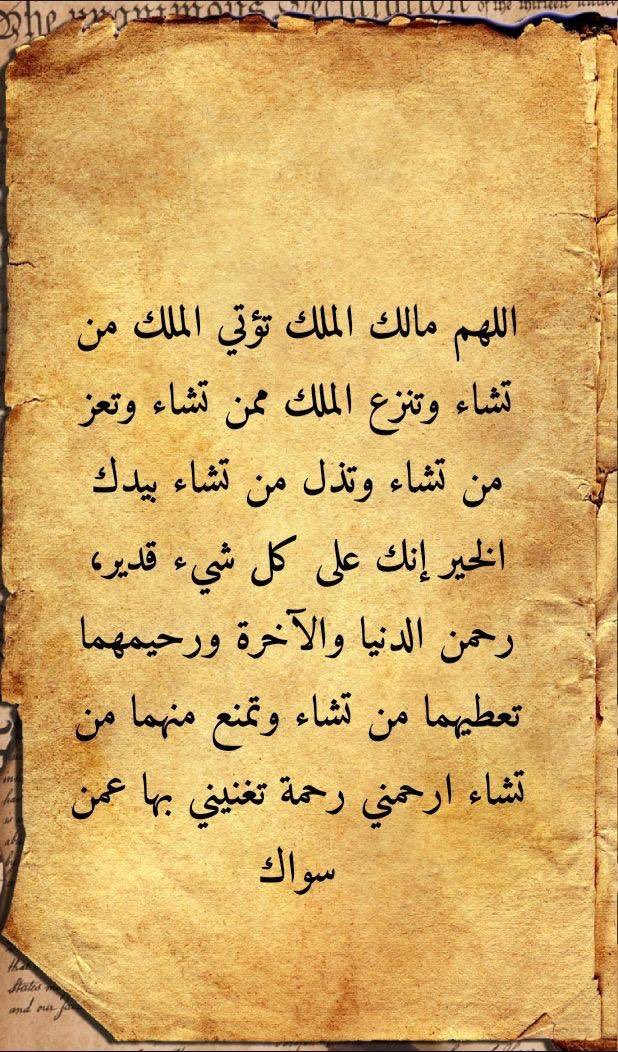 The unanimous Declaration of the thirteen united
اللهم مالك الملك تؤتي الملك من
تشاء وتنزع الملك ممن تشاء وتعز
من تشاء وتذل من تشاء بيدك
الخير إنك على كل شيء قدير،
رحمن الدنيا والآخرة ورحيمهما
تعطيهما من تشاء وتمنع منهما من
تشاء ارحمني رحمة تغنيني بها عمن
سواك
that
States
and our